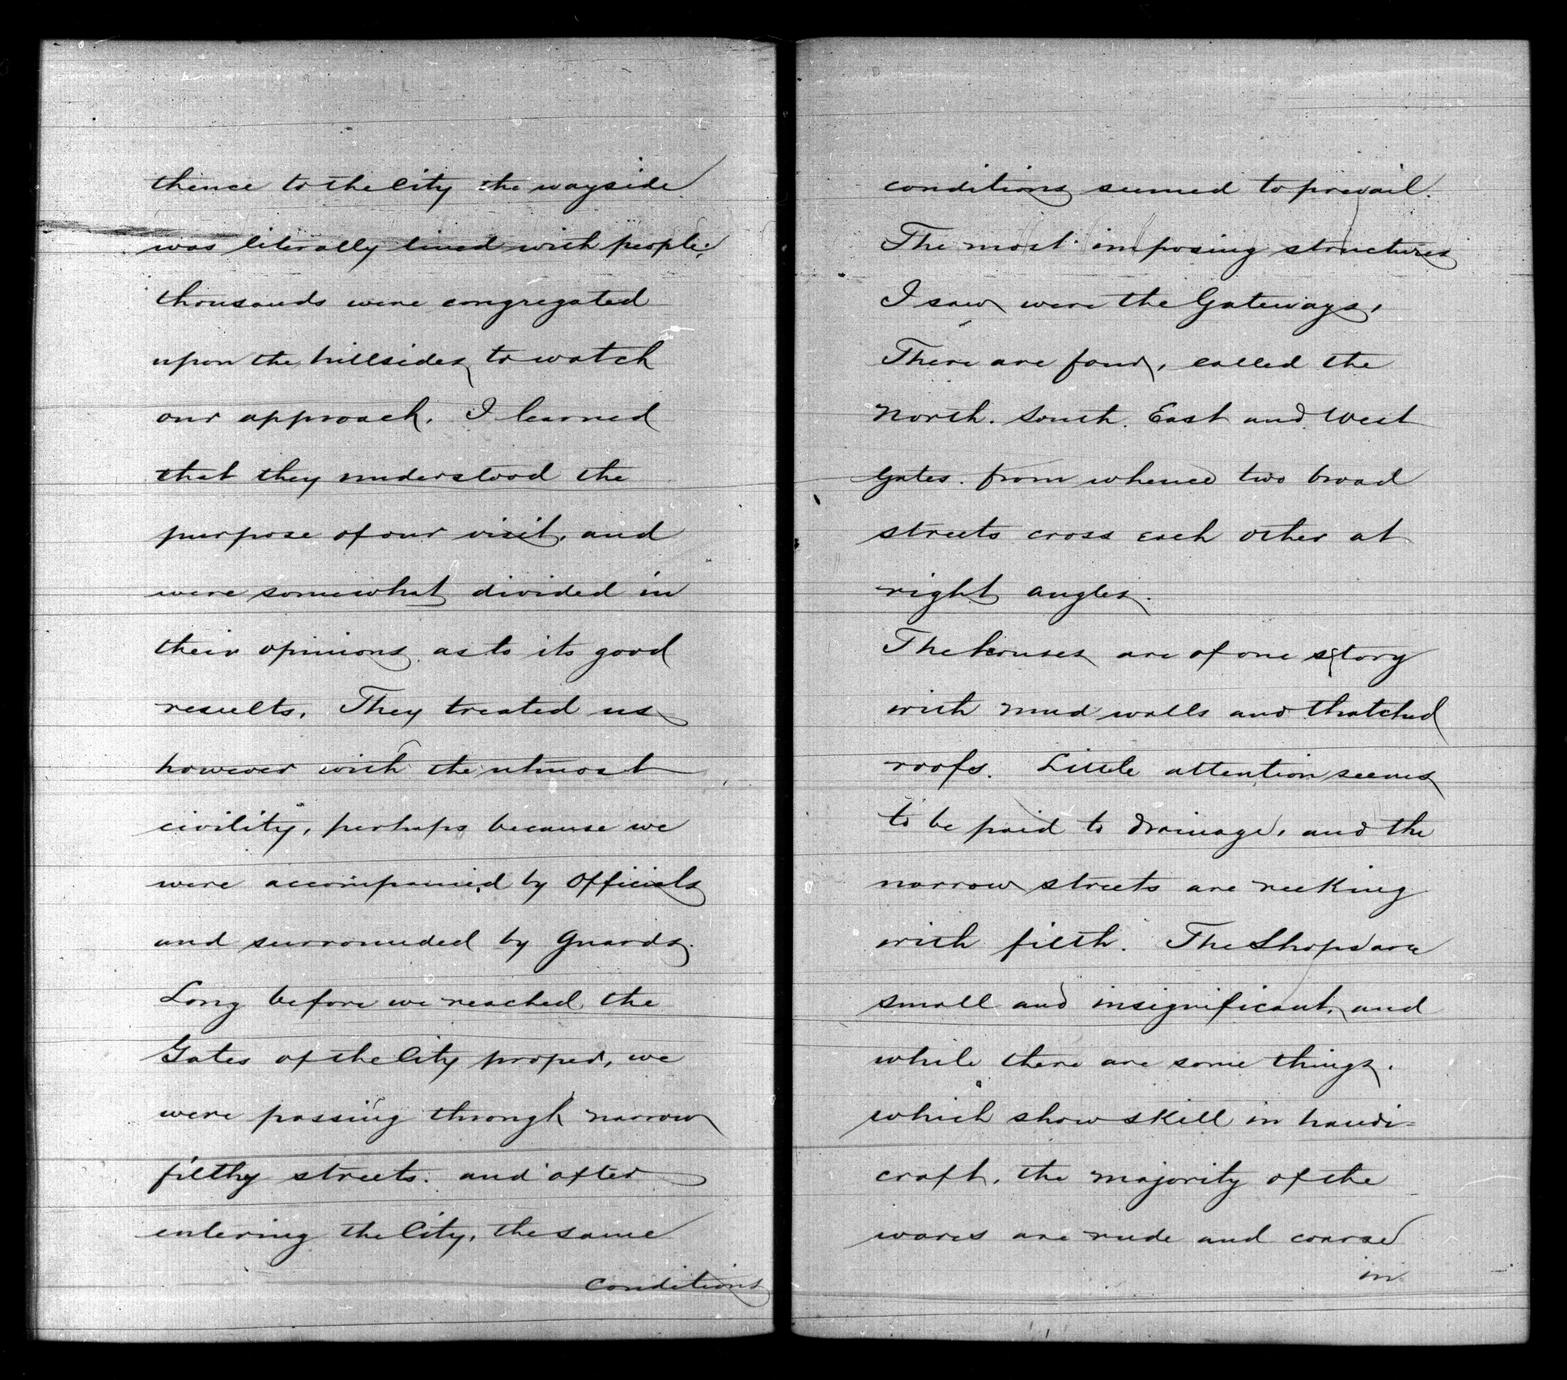 thence to the City the wayside
was literally lined with people;
thousands were congregated
upon the hillsides, to watch
our approach. I learned
that they understood the
purpose of our visit, and
were somewhat divided in
their opinions as to its good
results. They treated us
however with the utmost
civility, perhaps because we
were accompanied by Officials
and surrounded by Guards.
Long before we reached the
Gates of the City proper, we
were passing through narrow
filthy streets. and after
entering the City, the same
conditions
conditions seemed to prevail.
The most imposing structures
I saw were the Gateways.
There are four, called the
North. South. East and West
Gates. from whence two broad
streets cross each other at
right angles.
The houses are of one story
with mud walls and thatched
roofs. Little attention seems
to be paid to drainage, and the
narrow streets are reeking
with filth. The Shops are
small and insignificant, and
while there are some things.
which show skill in handi-
craft, the majority of the
wares are rude and coarse
in